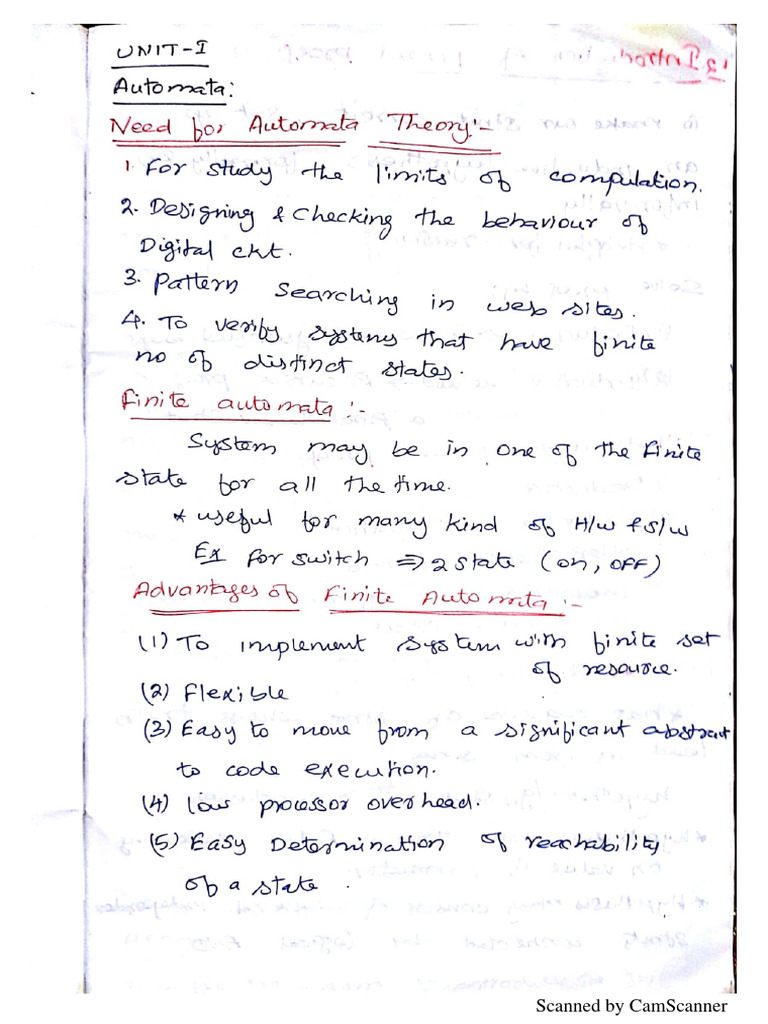 UNIT-I
Automata:
Need for Automata Theory:-
1. For study the limits of compulation.
2. Designing & Checking the behaviour of
Digital ckt.
3. Pattern Searching in web sites.
4. To verify systems that have finite
no of distinct states.
Finite automata:-
System may be in one of the Finite
state for all the time.
* useful for many kind of H/w & S/w
Ex for switch ⇒ 2 state (on, OFF)
Advantages of Finite Automata:-
(1) To implement system with finite set
of resource.
(2) Flexible
(3) Easy to move from a significant abstract
to code execution.
(4) low processor overhead.
(5) Easy Determination of reachability
of a state.
Scanned by CamScanner